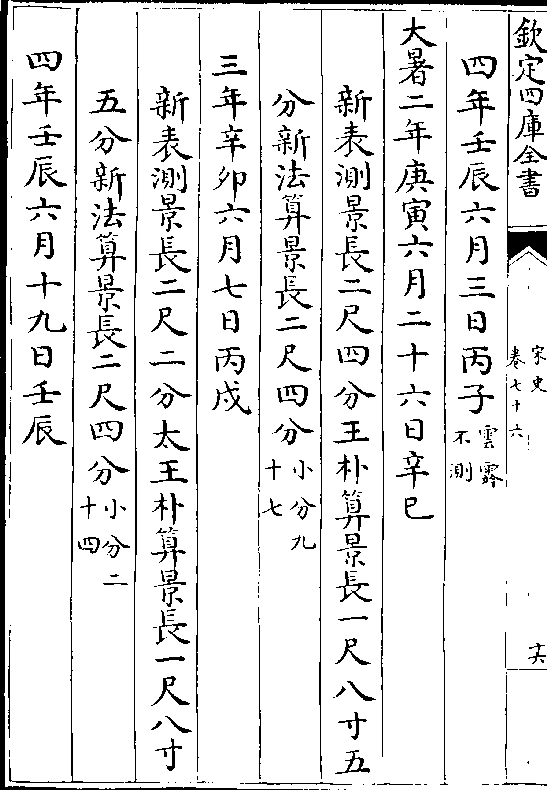 欽定四庫全書
宋史
卷七十六
十六
四年壬辰六月三日丙子雲霧不測
大暑二年庚寅六月二十六日辛巳
新表測景長二尺四分王朴算景長一尺八寸五
分新法算景長二尺四分小分九十七
三年辛卯六月七日丙戌
新表測景長二尺二分太王朴算景長一尺八寸
五分新法算景長二尺四分小分二十四
四年壬辰六月十九日壬辰